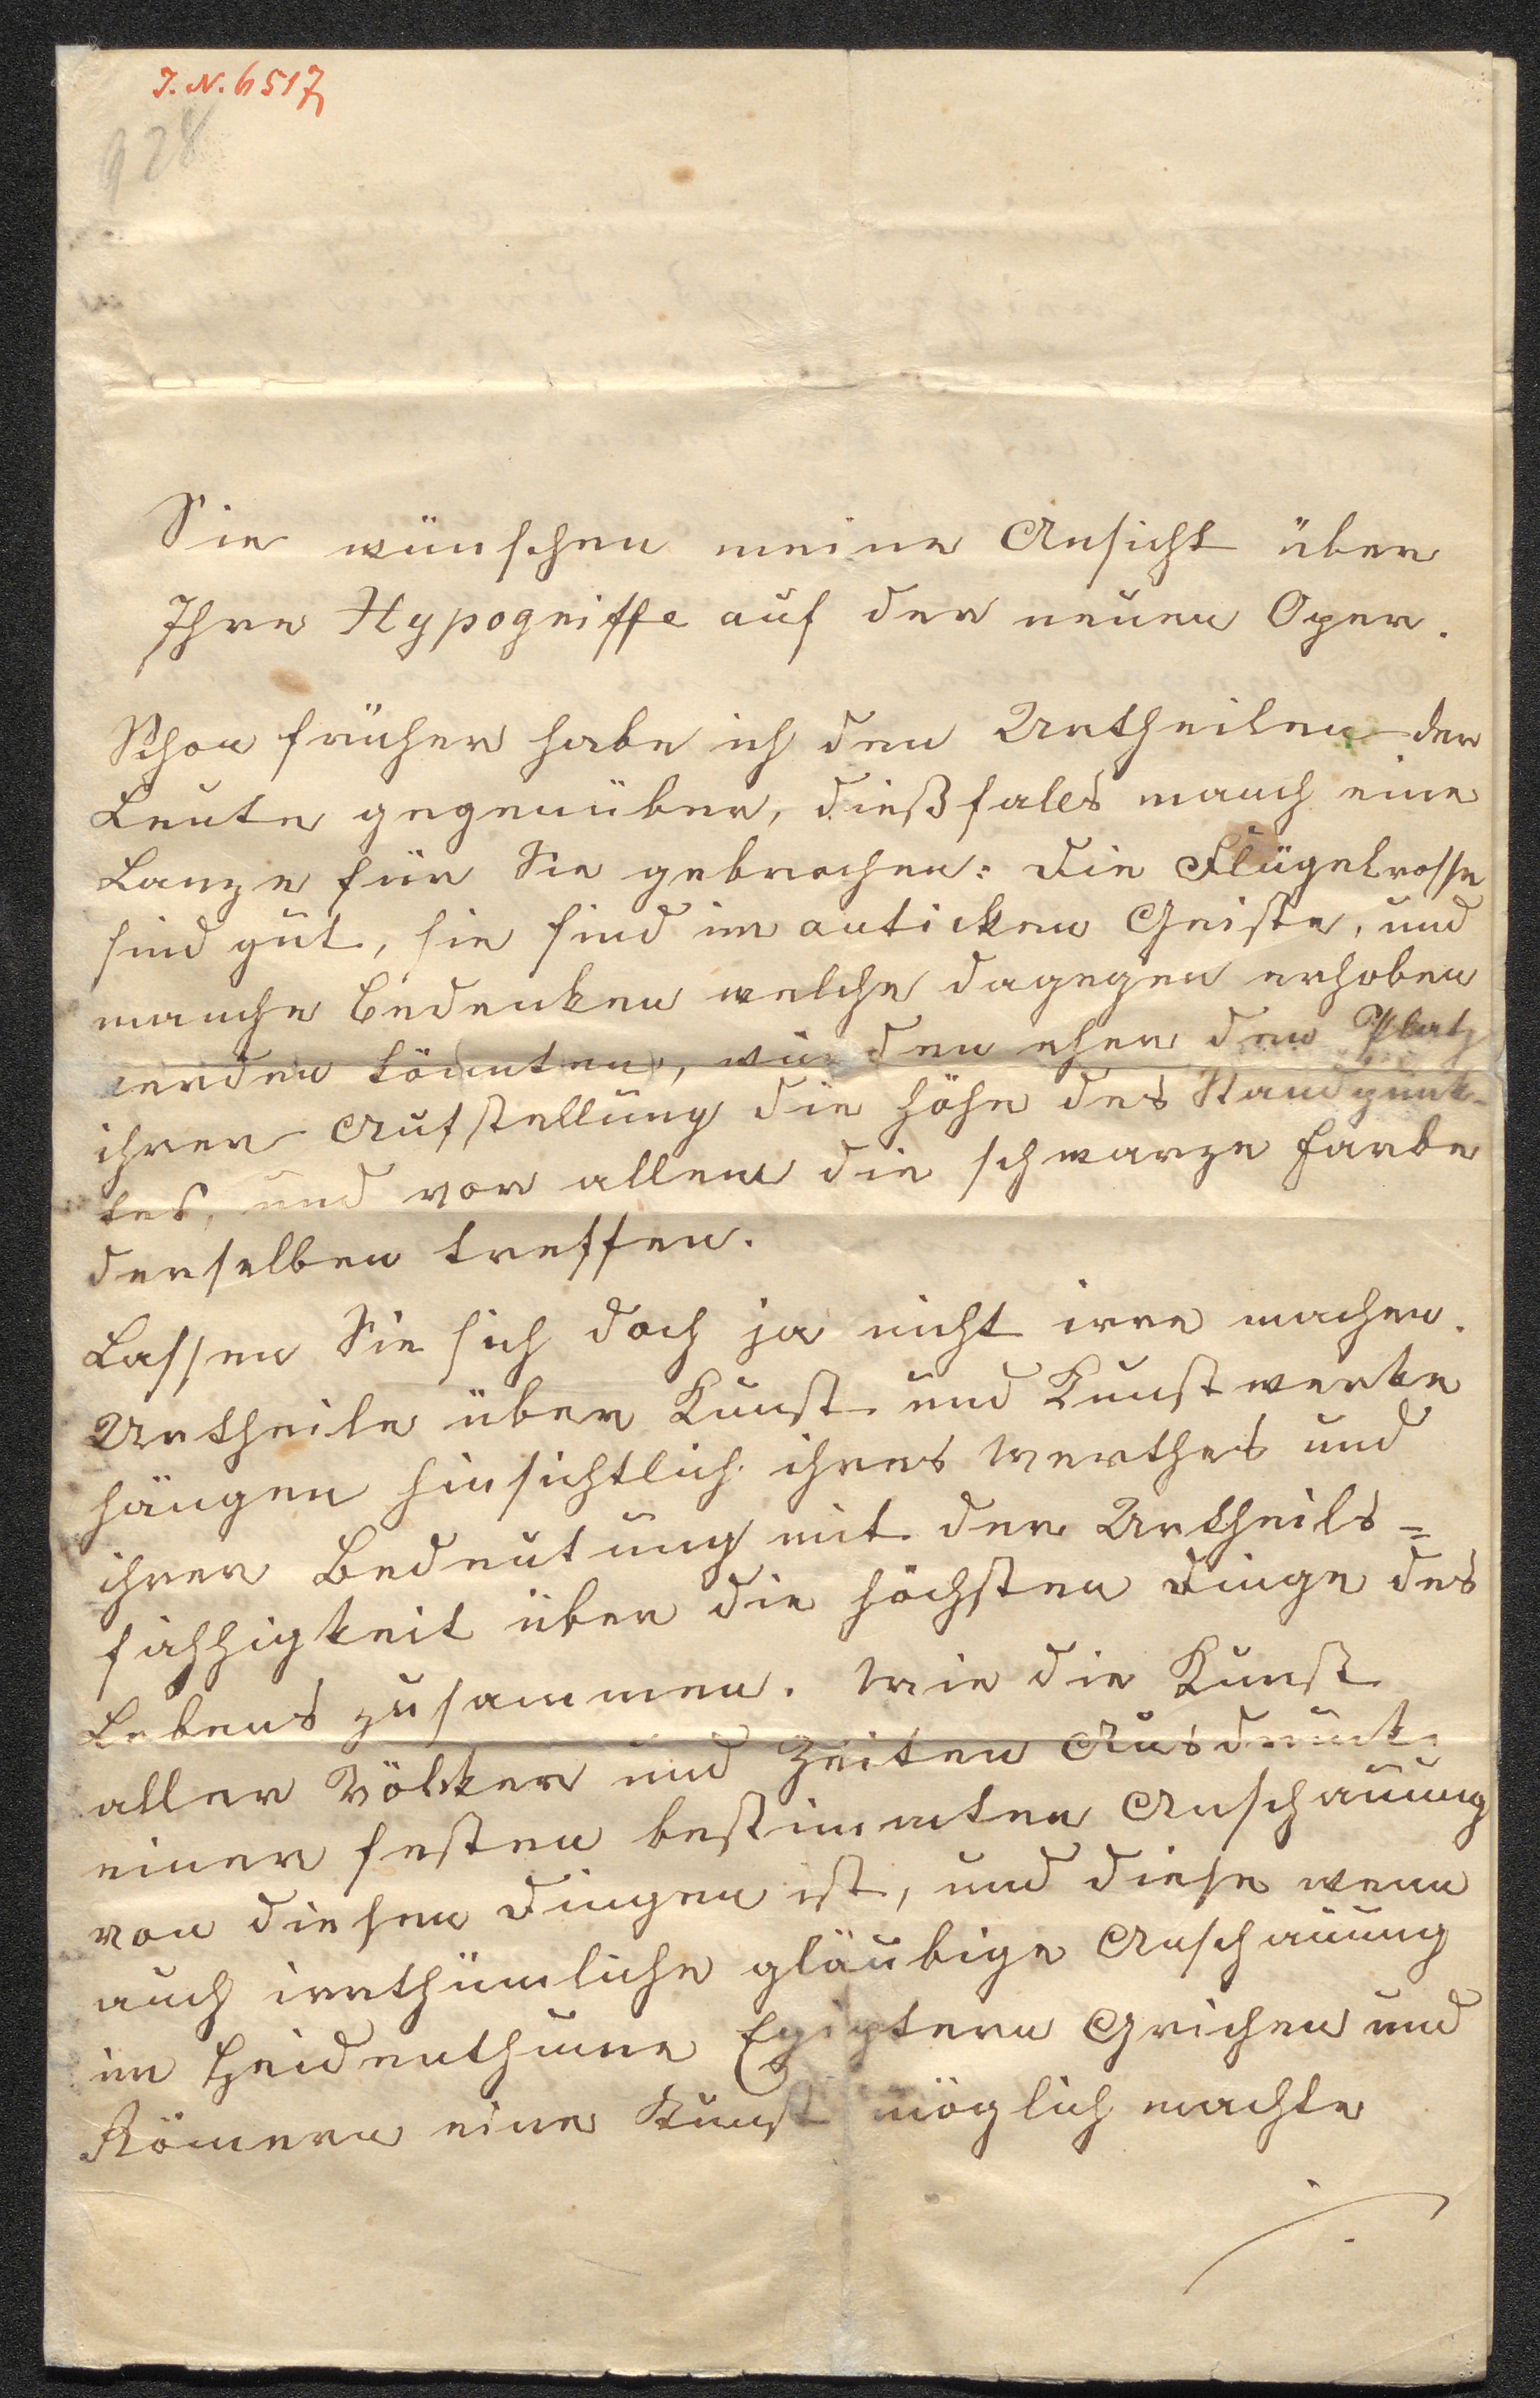 J. N. 6517
928
Sie wünschen meine Ansicht über
Ihre Hypogriffe auf der neuen Oper.
Schon früher habe ich den Urtheilen der
Leute gegenüber, dießfalls manch eine
Lanze für Sie gebrochen: die Flügelrosse
sind gut, sie sind im anticken Geiste, und
manche Bedenken welche dagegen erhoben
werden könnten, würden eher den Platz
ihrer Aufstellung die Höhe des Standpunk-
tes, und vor allem die schwarze Farbe
derselben treffen.
Lassen Sie sich doch ja nicht irre machen.
Urtheile über Kunst und Kunstwerke
hängen hinsichtlich ihres Werthes und
ihrer Bedeutung mit der Urtheils=
fähhigkeit über die höchsten Dinge des
Lebens zusammen. Wie die Kunst
aller Völker und Zeiten Ausdruck
einer festen bestimmten Anschauung
von diesen Dingen ist, und diese wenn
auch irrthümliche gläubige Anschauung
im Heidenthume Egiptern Grichen und
Römern eine Kunst möglich machte